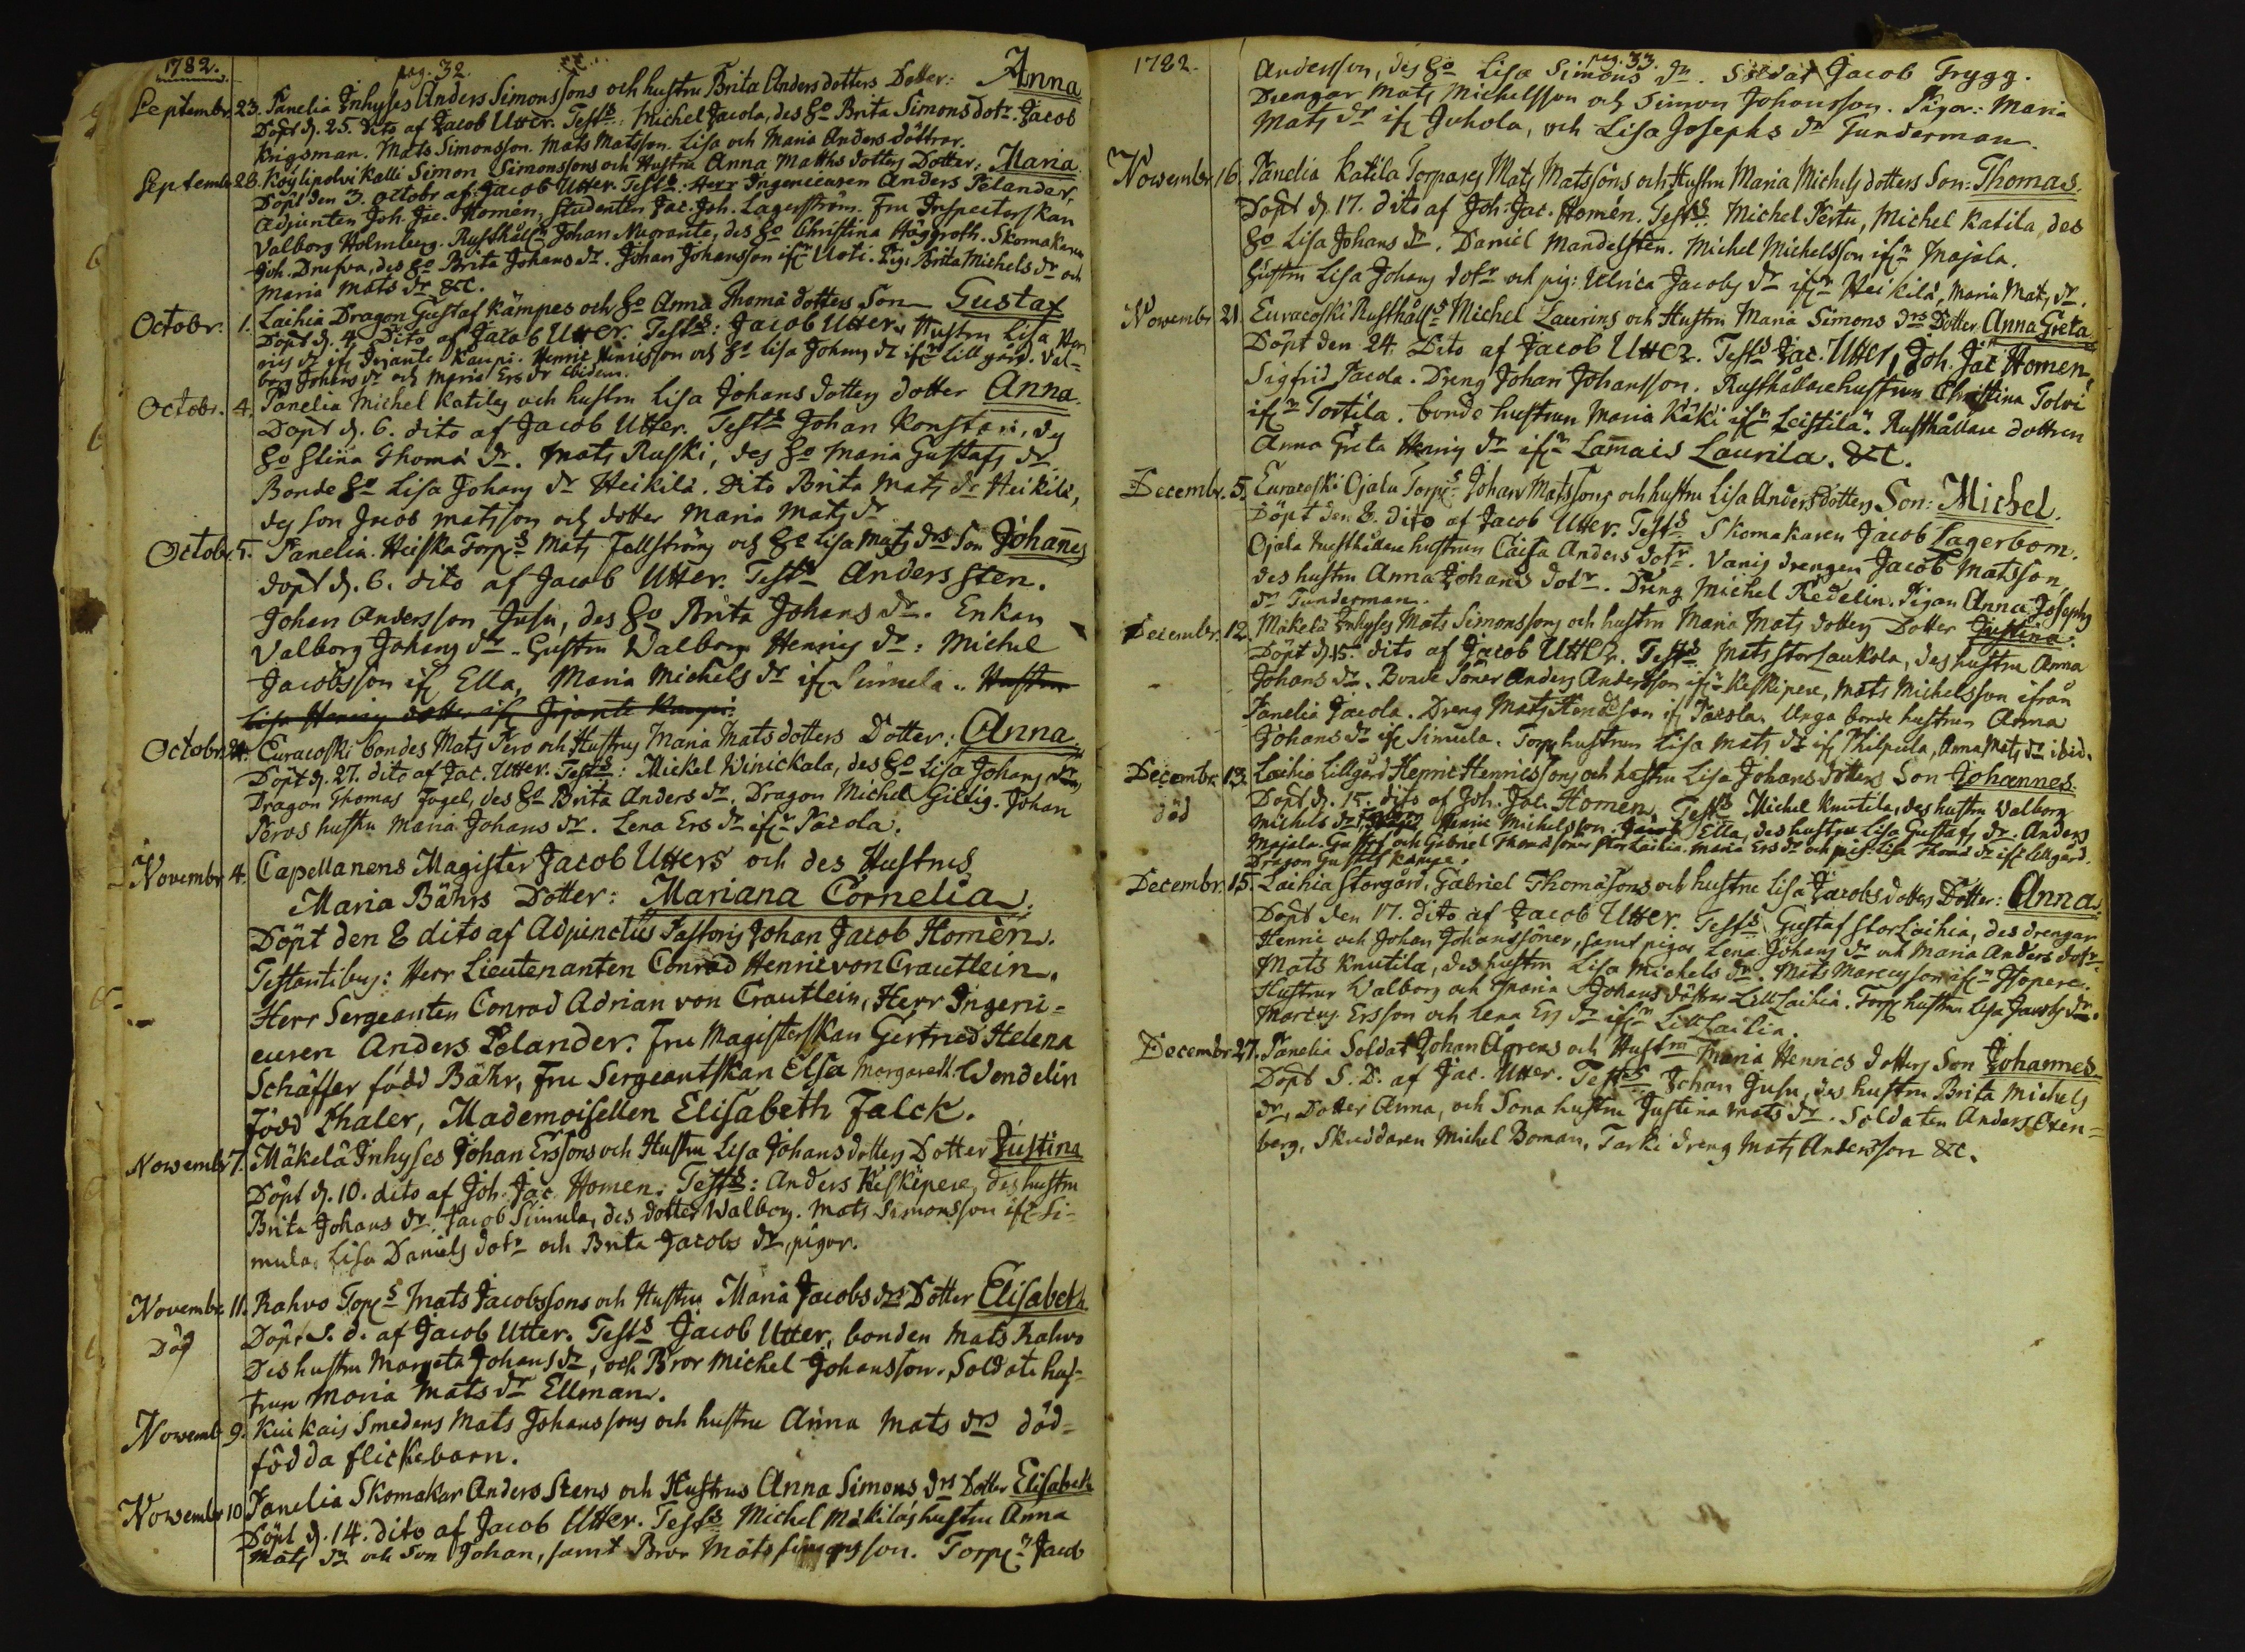 1782.
pag. 32.
Septembr. 23. Panelia Inhyses Anders Simonssons och hustru Brita Andersdotters Dotter: Anna
Döpt d. 25. dito af Jacob Utter. Test:s Michel Jacola, des ho Brita Simons dotr. Jacob
Krigsman. Mats Simonsson. Mats Matsson. Lisa och Maria Anders döttrar.
Septembr 28. Köylipolvi Kalli Simon Simonssons och Hustru Anna Matths dotters Dotter. Maria
Döpt den 3. octobr af Jacob Utter. Test:s: Herr Ingenieuren Anders Pelander,
Adjunten Joh. Jac. Homén, Studenten Jac. Joh. Lagerström. Fru Inspectorskan
Valborg Holmberg. Rusthåll:n Johan, des ho Christina Häggroth. Skomakaren
Joh. Drufva, des ho Brita Johans dr. Johan Johansson if:n Uoti. Pig: Brita Michels dr och
Maria Mats dr &c.
Octobr. 1. Laihia Dragon Gustaf Kämpes och ho Anna Thomä dotters Son Gustaf
Döpt d. 4. Dito af Jacob Utter. Test:s: Jacob Utter, Hustru Lisa Hen
rics dr if: Jyante Kaupi. Henric Henricsson och ho Lisa Johans dr if:n Lillgård. Val=
borg Johans dr och Maria Ers dr ibidem.
Octobr. 4. Panelia Michel Katilas och hustru Lisa Johans dotters dotter Anna.
Döpt d. 6. dito af Jacob Utter. Test:s Johan Konstari, des
ho Elina Thomä dr. Mats Ruski, des ho Maria Gustafs dr.
Bonde ho Lisa Johans dr Heikilä. Dito Brita Mats dr Heikilä,
des son Jacob Matsson och dotter Maria Mats dr
Octobr. 5. Panelia Heiska Torp:s Mats Fellströms och ho Lisa Mats drs Son Johanes
döpt d. 6. dito af Jacob Utter. Test:s Anders Sten.
Johan Andersson Jusu, des ho Brita Johans dr. Enkan
Valborg Johans dr. Hustru Walborg Henrics dr: Michel
Jacobsson if: Ella, Maria Michels dr if: Simula. Hustru
Lisa Henrics dotter if: Jyante Kaupi.
Octobr. 24. Euracoski bondes Mats Pero och Hustrus Maria Mats dotters Dotter: Anna
Döpt d. 27. dito af Jac. Utter. Test:s: Mickel Winickala, des ho Lisa Johans dr,
Dragon Thomas Fogel, des ho Brita Anders dr. Dragon Michel Gillig. Johan
Peros hustru Maria Johans dr. Lena Ers dr if:n Pacola.
Novembr 4. Capellanens Magister Jacob Utters och des Hustrus
Maria Bährs Dotter: Mariana Cornelia.
Döpt den 8 dito af Adjunctus Pastoris Johan Jacob Homén.
Testantibus: Herr Lieutenanten Conrad Henric von Crautlein.
Herr Sergeanten Conrad Adrian von Crautlein, Herr Ingeni=
euren Anders Pelander. Fru Magisterskan Gertrud Helena
Schäffer född Bähr, Fru Sergeantskan Elsa Margareth. Wendelin
född Thaler, Mademoisellen Elisabeth Falck.
Novembr 7. Mäkelä Inhyses Johan Erssons och Hustru Lisa Johans dotters Dotter Justina
Döpt d. 10. dito af Joh. Jac. Homen. Test:s: Anders Keskipere, des hustru
Brita Johans dr. Jacob Simula, des dotter Walborg. Mats Simonsson if:n Si=
mula. Lisa Daniels dotr och Brita Jacobs dr, pigor.
Novembr 11. Rahvo Torp:s Mats Jacobssons och Hustru Maria Jacobs drs Dotter Elisabeth
Död
Döpt S. d. af Jacob Utter. Test:s Jacob Utter, bonden Mats Rahvo
Des hustru Margeta Johans dr, och Bror Michel Johansson. Soldate hus=
trun Maria Mats dr Ellman.
Novembr 9. Kiukais Smedens Mats Johanssons och hustru Anna Mats drs död=
födda flickebarn.
Novembr 10 Panelia Skomakar Anders Stens och Hustrus Anna Simons drs Dotter Elisabeth
Döpt d. 14. dito af Jacob Utter. Test:s Michel Mäkiläs hustru Anna
Mats dr och Son Johan, samt Bror Mats Simonsson. Torp:n Jacob
1782.
pag. 33.
Andersson, des ho Lisa Simons dr. Soldat Jacob Trygg.
Drengar Mats Michelsson och Simon Johansson. Pigor: Maria
Mats dr if: Juhola, och Lisa Josephs dr Tunderman.
Novembr. 16. Panelia Katila Torpares Mats Matssons och Hustru Maria Michels dotters Son: Thomas.
Döpt d. 17. dito af Joh. Jac. Homén. Test:s Michel Pertu, Michel Katila, des
ho Lisa Johans dr. Daniel Mandelsten. Michel Michelsson if:n Majala.
Hustru Lisa Johans dotr och pig: Ulrica Jacobs dr if:n Heikilä, Maria Mats dr.
Novembr 21. Euracoski Rusthåll:s Michel Laurins och Hustru Maria Simons drs Dotter Anna Greta
Döpt den 24. Dito af Jacob Utter. Test:s Jac. Utter, Joh. Jac Homen,
Sigfrid Pacola. Dreng Johan Johansson. Rusthållare hustrun Christina Tolvi
if:n Tortila. bonde hustrun Maria Käki if:n Leistilä. Rusthållare dottren
Anna Greta Henrics dr if:n Lamais Laurila. &c.
Decembr. 5. Euracoski Ojala Torp:s Johan Matssons och hustru Lisa Andersdotters Son: Michel.
Döpt den 8. dito af Jacob Utter. Test:s Skomakaren Jacob Lagerbom.
Ojala Rusthållare hustrun Caisa Anders dotr. Vanis drengen Jacob Matsson,
des hustru Anna Johans dotr. Dreng Michel Redelin. Pigan Anna Josephs
dr Tunderman.
Decembr. 12. Mäkelä Inhyses Mats Simonssons och hustru Maria Mats dotters Dotter Justina.
Döpt d. 15. dito af Jacob Utter. Test:s Mats Storlaukola, des hustru Anna
Johans dr. Bonde Söner Anders Andersson if:n Keskipere, Mats Michelsson ifrån
Panelia Jacola. Dreng Mats Hendsson if: Pacola. Unga bonde hustrun Anna
Johans dr if: Simula. Torp: hustrun Lisa Mats dr if: Kilpula, Anna Mats dr ibid.
Decembr. 13. Laihia Lillgård Henric Henricssons och hustru Lisa Johans dotters Son Johannes.
död
Döpt d. 15. dito af Joh. Jac. Homén. Test:s Michel Knutila, des hustru Valborg
Michels dr, Henric Michelsson. Jacob Ella, des hustru Lisa Gustafs dr. Anders
Majala. Gustaf och Gabriel Thomä söner Storlaihia. Maria Ers dr och pig: Lisa Thomä dr if: Lillgård.
Dragon Gustaf Kämpe.
Decembr. 15. Laihia Storgård, Gabriel Thomäsons och hustru Lisa Jacobsdotters Dotter: Anna.
Döpt den 17. dito af Jacob Utter. Test:s Gustaf Storlaihia, des drengar
Henric och Johan Johanssöner, samt pigor Lena Johans dr och Maria Anders dotr.
Mats Knutila, des hustru Lisa Michels dr. Mats Marcusson if:n Isopere.
Hustrur Walborg och Maria Johans döttrar Lill Laihia. Torp hustru Lisa Jacobs dr.
Marcus Ersson och Lena Ers dr if:n Lill Laihia.
Decembr 27. Panelia Soldat Johan Ågrens och Hustru Maria Henrics dotters Son Johannes.
Döpt S. D. af Jac. Utter. Test:s Johan Jusu, des hustru Brita Michels
dr, Dotter Anna, och Sona hustru Justina Mats dr. Soldaten Anders Oxen=
berg. Skreddaren Michel Boman. Tarki dreng Mats Andersson &c.